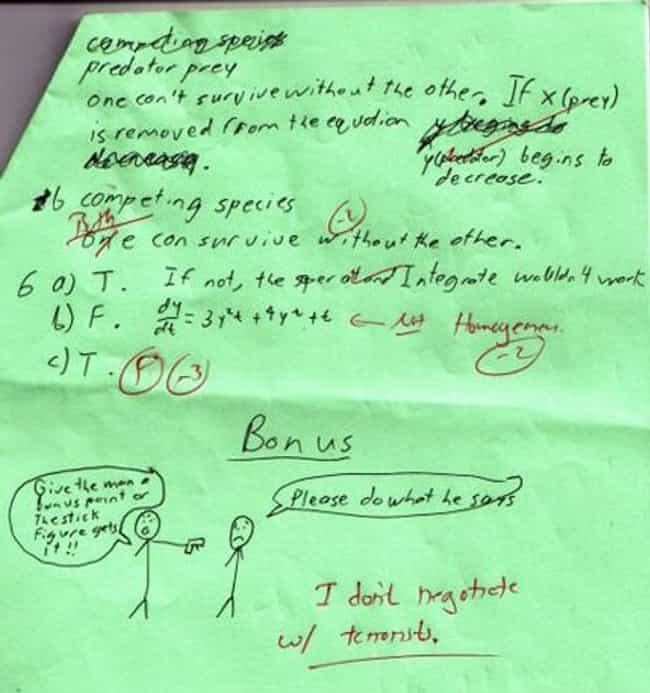 competing species
predator prey
one can't survive without the other. If x (prey)
is removed from the equation y begins to
decrease. y(predator) begins to
decrease.
b competing species
Both
one can survive without the other. -2
6 a) T. If not, the operator Integrate wouldn't work
b) F. dy/dt = 3y²t + 4y⁴ + t ← Not Homogeneous.
-2
c) T. F -3
Bonus
Give the man a
bonus point or
The stick
Figure gets
it!!
Please do what he says
I don't negotiate
w/ terrorists.